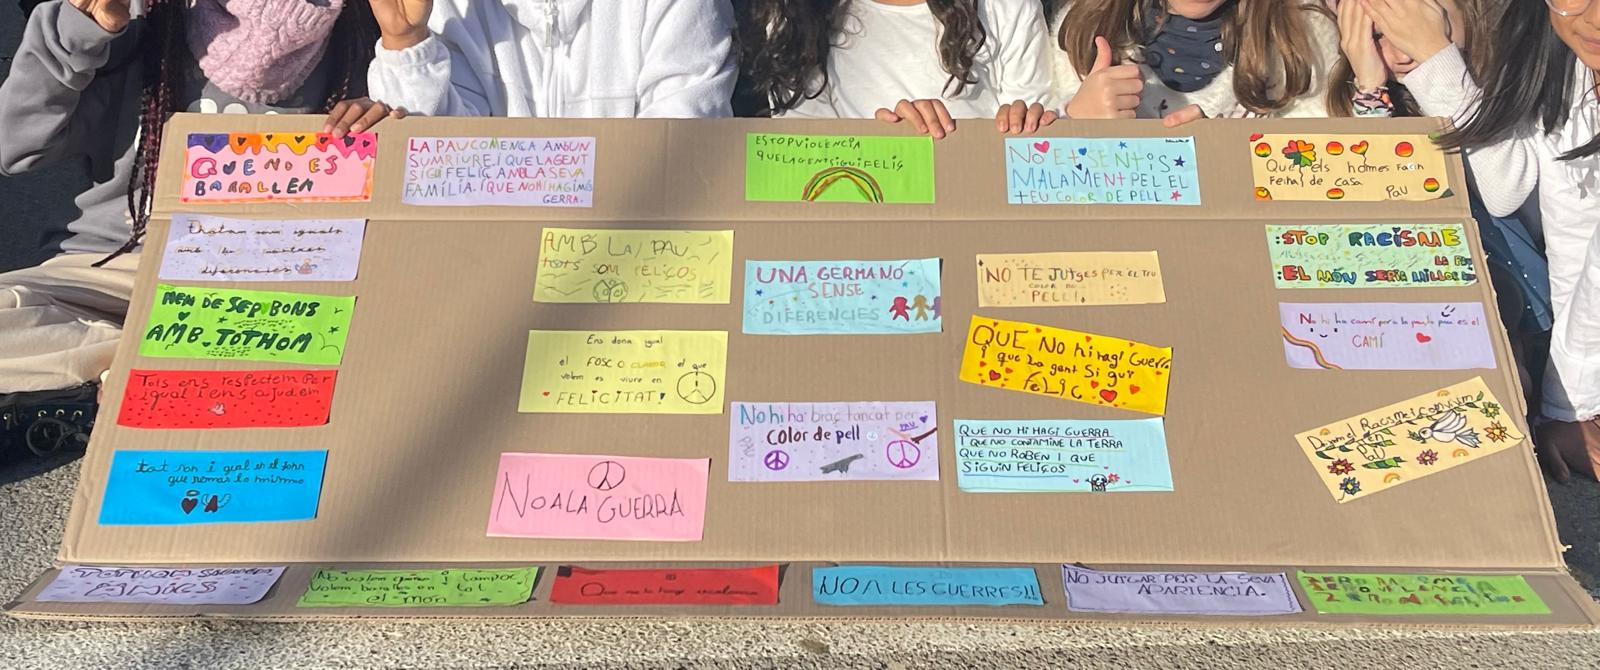 QUE NO ES
BARALLEN
LA PAU COMENÇA AMB UN
SUMRIURE. I QUE LA GENT
SIGUI FELIÇ AMB LA SEVA
FAMÍLIA. I QUE NO HI HAGI MÉS
GERRA.
ESTOP VIOLENCIA
QUE LA GENT SIGUI FELIÇ
NO ET SENTIS
MALAMENT PEL EL
TEU COLOR DE PELL
Que els homes facin
Feina de casa
Pau
som iguals
amb les nostres
diferencies
HEM DE SER BONS
AMB TOTHOM
Tots ens respectem per
igual i ens ajudem
tot son i gual en el fons
que nomas lo mismo
AMB LA PAU
tots SOM FELIÇOS
Ens dona igual
el FOSC O CLARO el que
volem es viure en
FELICITAT!
NO A LA GUERRA
UNA GERMANO
SENSE
DIFERENCIES
No hi ha braç tancat per
color de pell
PAU
PAU
¡NO TE JUTGES PER EL TEU
COLOR DE
PELL!
QUE NO hi hagi Guerra
i que la gent Sigui
feLIÇ
QUE NO HI HAGI GUERRA
I QUE NO CONTAMINE LA TERRA
QUE NO ROBEN I QUE
SIGUIN FELIÇOS
STOP RACISME
LA PAU
EL MÓN SERIA MILLOR
No hi ha camí per a la pau, la pau es el
CAMÍ
el Racisme i
en
PaU
TOTHOM
AMICS
No volem guerra i tampoc
volem baralles en tot
el món
Que no hi hagi
NO A LES GUERRES!!
NO JUTGAR PER LA SEVA
APARIENCIA.
ZERO
ZERO VIOLENCIA
ZERO